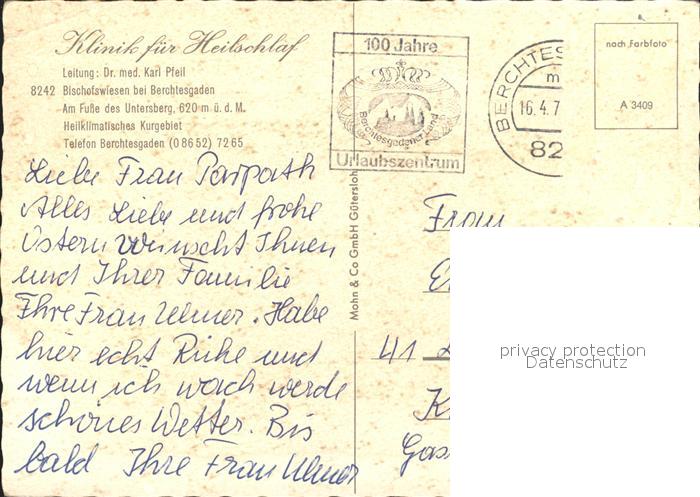 Klinik für Heilschlaf
Leitung: Dr. med. Karl Pfeil
8242 Bischofswiesen bei Berchtesgaden
Am Fuße des Untersberg, 620 m ü. d. M.
Heilklimatisches Kurgebiet
Telefon Berchtesgaden (0 86 52) 72 65
100 Jahre
Berchtesgadener Land
Urlaubszentrum
BERCHTES
m
16.4.7
82
nach Farbfoto
A 3409
Liebe Frau Parpath
Alles Liebe und frohe
Ostern wünscht Ihnen
und Ihrer Familie
Ihre Frau Ulmer. Habe
hier echt Ruhe und
wenn ich wach werde
schönes Wetter. Bis
bald Ihre Frau Ulmer
Mohn & Co GmbH Gütersloh
Frau
41
K
Gas
privacy protection
Datenschutz